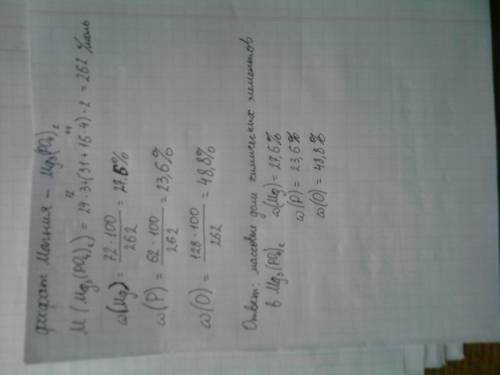 фосфат Магния – Mg₃(PO₄)₂
72
M(Mg₃(PO₄)₂) = 24·3+(31+16·4)·2 = 262 г/моль
ω(Mg) = 72·100 / 262 = 27,6%
ω(P) = 62·100 / 262 = 23,6%
ω(O) = 128·100 / 262 = 48,8%
Ответ: массовые доли химических элементов
в Mg₃(PO₄)₂ ω(Mg) = 27,6%
ω(P) = 23,6%
ω(O) = 48,8%